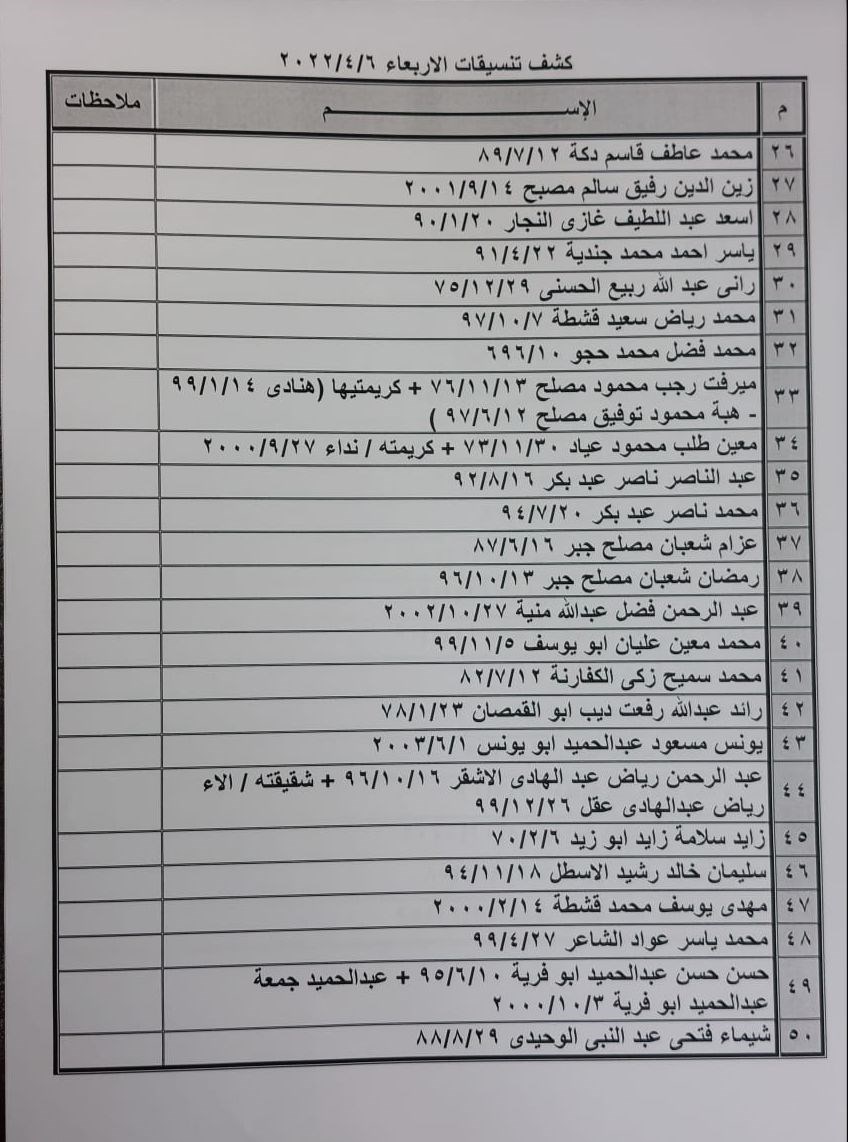 كشف تنسيقات الاربعاء ٢٠٢٢/٤/٦
م الإســـــــــم ملاحظات
٢٦ محمد عاطف قاسم دكة ٨٩/٧/١٢
٢٧ زين الدين رفيق سالم مصبح ٢٠٠١/٩/١٤
٢٨ اسعد عبد اللطيف غازى النجار ٩٠/١/٢٠
٢٩ ياسر احمد محمد جندية ٩١/٤/٢٢
٣٠ رانى عبد الله ربيع الحسنى ٧٥/١٢/٢٩
٣١ محمد رياض سعيد قشطة ٩٧/١٠/٧
٣٢ محمد فضل محمد حجو ٦٩٦/١٠
٣٣ ميرفت رجب محمود مصلح ٧٦/١١/١٣ + كريمتيها (هنادى ٩٩/١/١٤
- هبة محمود توفيق مصلح ٩٧/٦/١٢ )
٣٤ معين طلب محمود عياد ٧٣/١١/٣٠ + كريمته / نداء ٢٠٠٠/٩/٢٧
٣٥ عبد الناصر ناصر عبد بكر ٩٢/٨/١٦
٣٦ محمد ناصر عبد بكر ٩٤/٧/٢٠
٣٧ عزام شعبان مصلح جبر ٨٧/٦/١٦
٣٨ رمضان شعبان مصلح جبر ٩٦/١٠/١٣
٣٩ عبد الرحمن فضل عبدالله منية ٢٠٠٢/١٠/٢٧
٤٠ محمد معين عليان ابو يوسف ٩٩/١١/٥
٤١ محمد سميح زكى الكفارنة ٨٢/٧/١٢
٤٢ رائد عبدالله رفعت ديب ابو القمصان ٧٨/١/٢٣
٤٣ يونس مسعود عبدالحميد ابو يونس ٢٠٠٣/٦/١
٤٤ عبد الرحمن رياض عبد الهادى الاشقر ٩٦/١٠/١٦ + شقيقته / الاء
رياض عبدالهادى عقل ٩٩/١٢/٢٦
٤٥ زايد سلامة زايد ابو زيد ٧٠/٢/٦
٤٦ سليمان خالد رشيد الاسطل ٩٤/١١/١٨
٤٧ مهدى يوسف محمد قشطة ٢٠٠٠/٢/١٤
٤٨ محمد ياسر عواد الشاعر ٩٩/٤/٢٧
٤٩ حسن حسن عبدالحميد ابو فرية ٩٥/٦/١٠ + عبدالحميد جمعة
عبدالحميد ابو فرية ٢٠٠٠/١٠/٣
٥٠ شيماء فتحى عبد النبى الوحيدى ٨٨/٨/٢٩